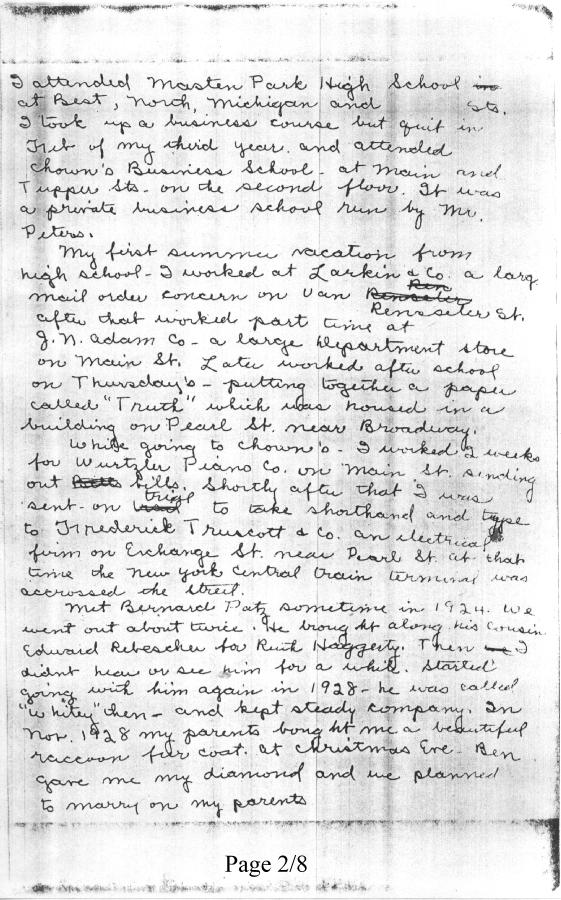 I attended Masten Park High School in
at Best, North, Michigan and sts.
I took up a business course but quit in
Feb of my third year. and attended
Chown's Business School - at Main and
Tupper Sts - on the second floor. It was
a private business school run by Mr.
Peters.
My first summer vacation from
high school - I worked at Larkin & Co. a larg
Ren
mail order concern on Van Rensseter
Rensseter St.
after that worked part time at
J. N. Adam Co - a large Department store
on Main St. Later worked after school
on Thursday's - putting together a paper
called "Truth" which was housed in a
building on Pearl St. near Broadway.
While going to Chown's - I worked 2 weeks
for Wurtzler Piano Co. on Main St. sending
out bills. Shortly after that I was
trial
sent - on to take shorthand and type
to Frederick Truscott & Co. an electrical
firm on Exchange St. near Pearl St. at that
time the New York Central train terminal was
accrossed the street.
Met Bernard Patz sometime in 1924. We
went out about twice. He brought along his cousin
Edward Rebescher for Ruth Haggerty. Then I
didnt hear or see him for a while. Started
going with him again in 1928 - he was called
"Whitey" then - and kept steady company. In
Nov. 1928 my parents bought me a beautiful
raccoon fur coat. at Christmas Eve - Ben
gave me my diamond and we planned
to marry on my parents
Page 2/8